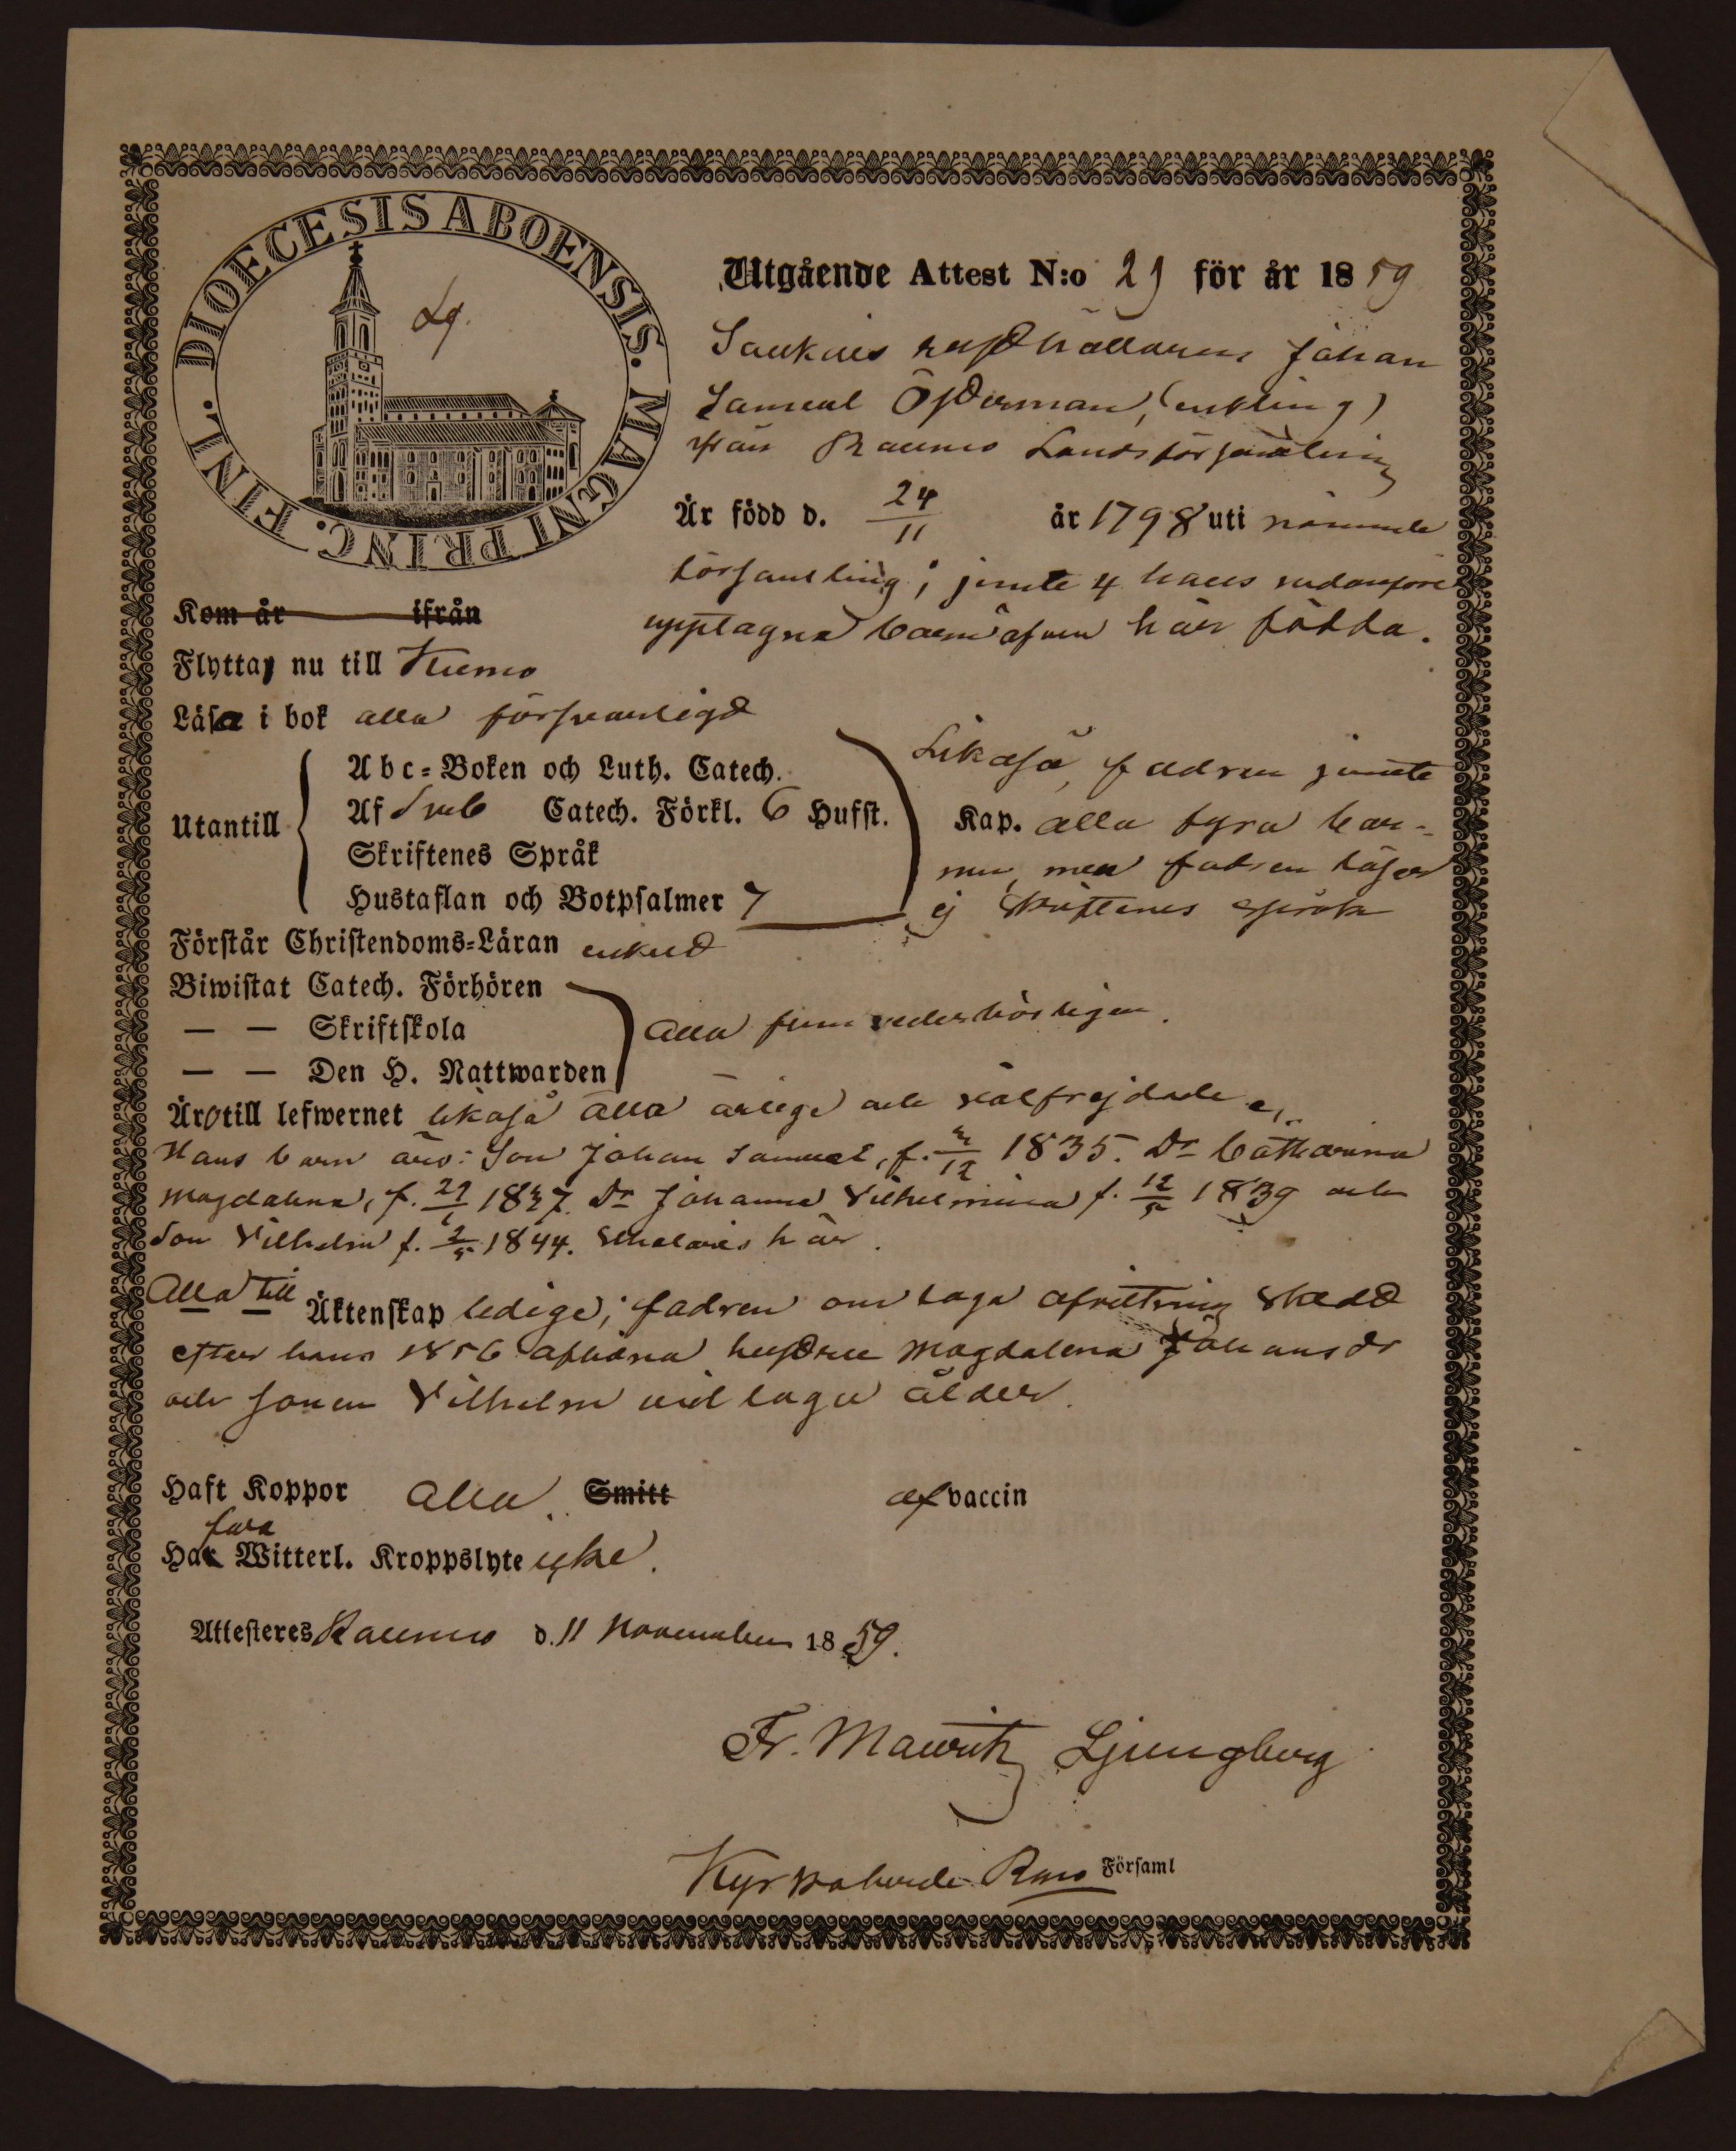 DIOECESIS ABOENSIS. MAGNI PRINC. FINL.
Utgående Attest N:o 29 för år 1859
rusthållaren Johan
Samuel Österman, (enkling)
från Raumo Landsförsamling
Är född d. 24/11 år 1798 uti nämnde
församling; jemte 4 hans nedanföre
upptagne barn äfven här födda.
Kom år ifrån
Flytta nu till Kumo
Läsa i bok alla försvarligt
Utantill
Abc-Boken och Luth. Catech.
Af Sveb Catech. Förkl. 6 Hufst.
Skriftenes Språk
Hustaflan och Botpsalmer 7
Likaså fadren jemte
Kap. alla fyra bar-
nen, men fadren läser
ej Skriftenes språk
Förstår Christendoms-Läran enkelt
Biwistat Catech. Förhören
— — Skriftskola
— — Den H. Nattwarden
alla fem vederbörligen.
Äro till lefwernet likaså alla ärlige och välfrejdade
Hans barn äro: Son Johan Samuel, f. /12 1835. Dr Catharina
Magdalena, f. Dr Johanna Vilhelmina f. 12/5 1839 och
Son Vilhelm f. 2/5 1844. här.
Alla till Äktenskap ledige; fadren om laga afvittring skedt
efter hans 1856 aflidna hustru Magdalena Johansdr
och sonen Vilhelm vid laga ålder.
Haft Koppor Alla. Smitt af vaccin
Hafva Witterl. Kroppslyte icke.
Attesteres Raumo d. 11 November 1859.
Fr. Mauritz Ljungberg
Kyrkoherde Rmo Församl